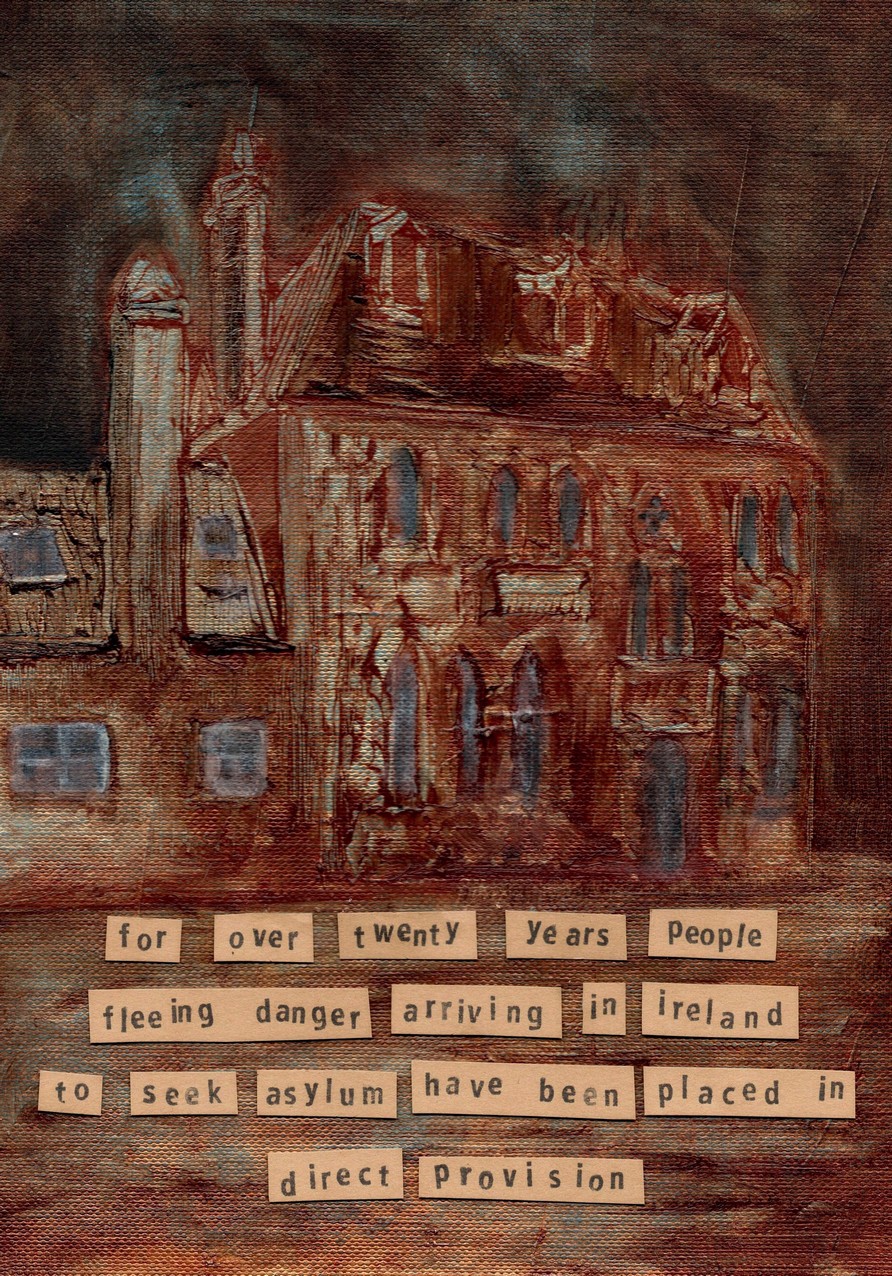 for over twenty years people
fleeing danger arriving in ireland
to seek asylum have been placed in
direct provision